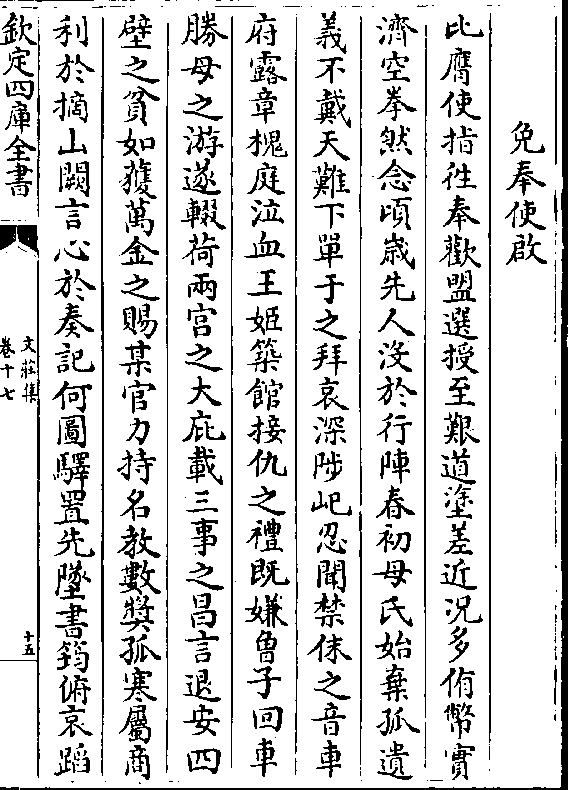 免奉使啟
比膺使指徃奉歡盟選授至艱道塗差近況多侑幣實
濟空拳然念頃歲先人沒於行陣春初母氏始棄孤遺
義不戴天難下單于之拜哀深陟屺忍聞禁佅之音車
府露章槐庭泣血王姬築館接仇之禮既嫌曾子回車
勝母之游遂輟荷兩宮之大庇載三事之昌言退安四
壁之貧如獲萬金之賜某官力持名教數獎孤寒屬商
利於摘山闕言心於奏記何圖驛置先墜書筠俯哀蹈
欽定四庫全書
文莊集
卷十七
十五